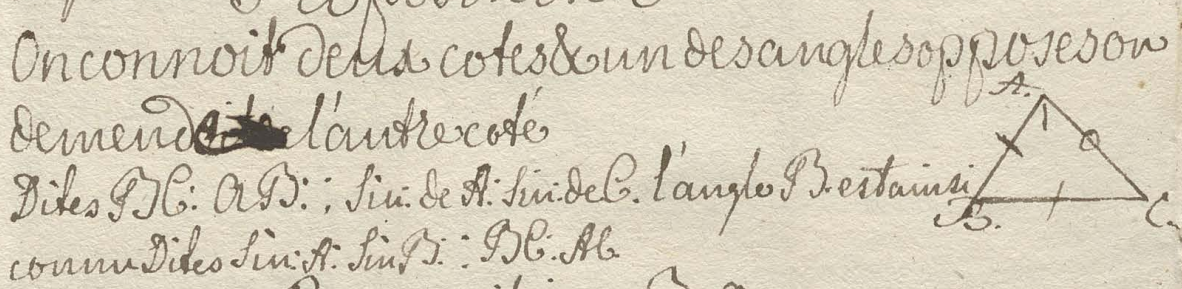 On connoit deux cotes & un des angles opposes on
demend l'autre coté
A.
Dites BC: AB:: Sin: de A: Sin: de C. l'angle B. est ainsi
B. C.
connu Dites Sin: A: Sin B:: BC: AC